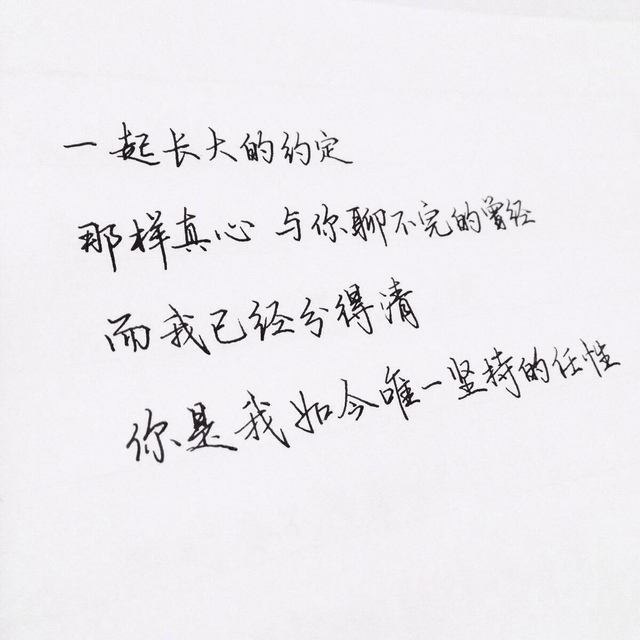 一起长大的约定
那样真心 与你聊不完的曾经
而我已经分得清
你是我如今唯一坚持的任性